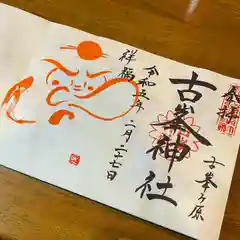 奉拝
古峯ヶ原
古峯神社
令和五年
二月二十七日
祥福